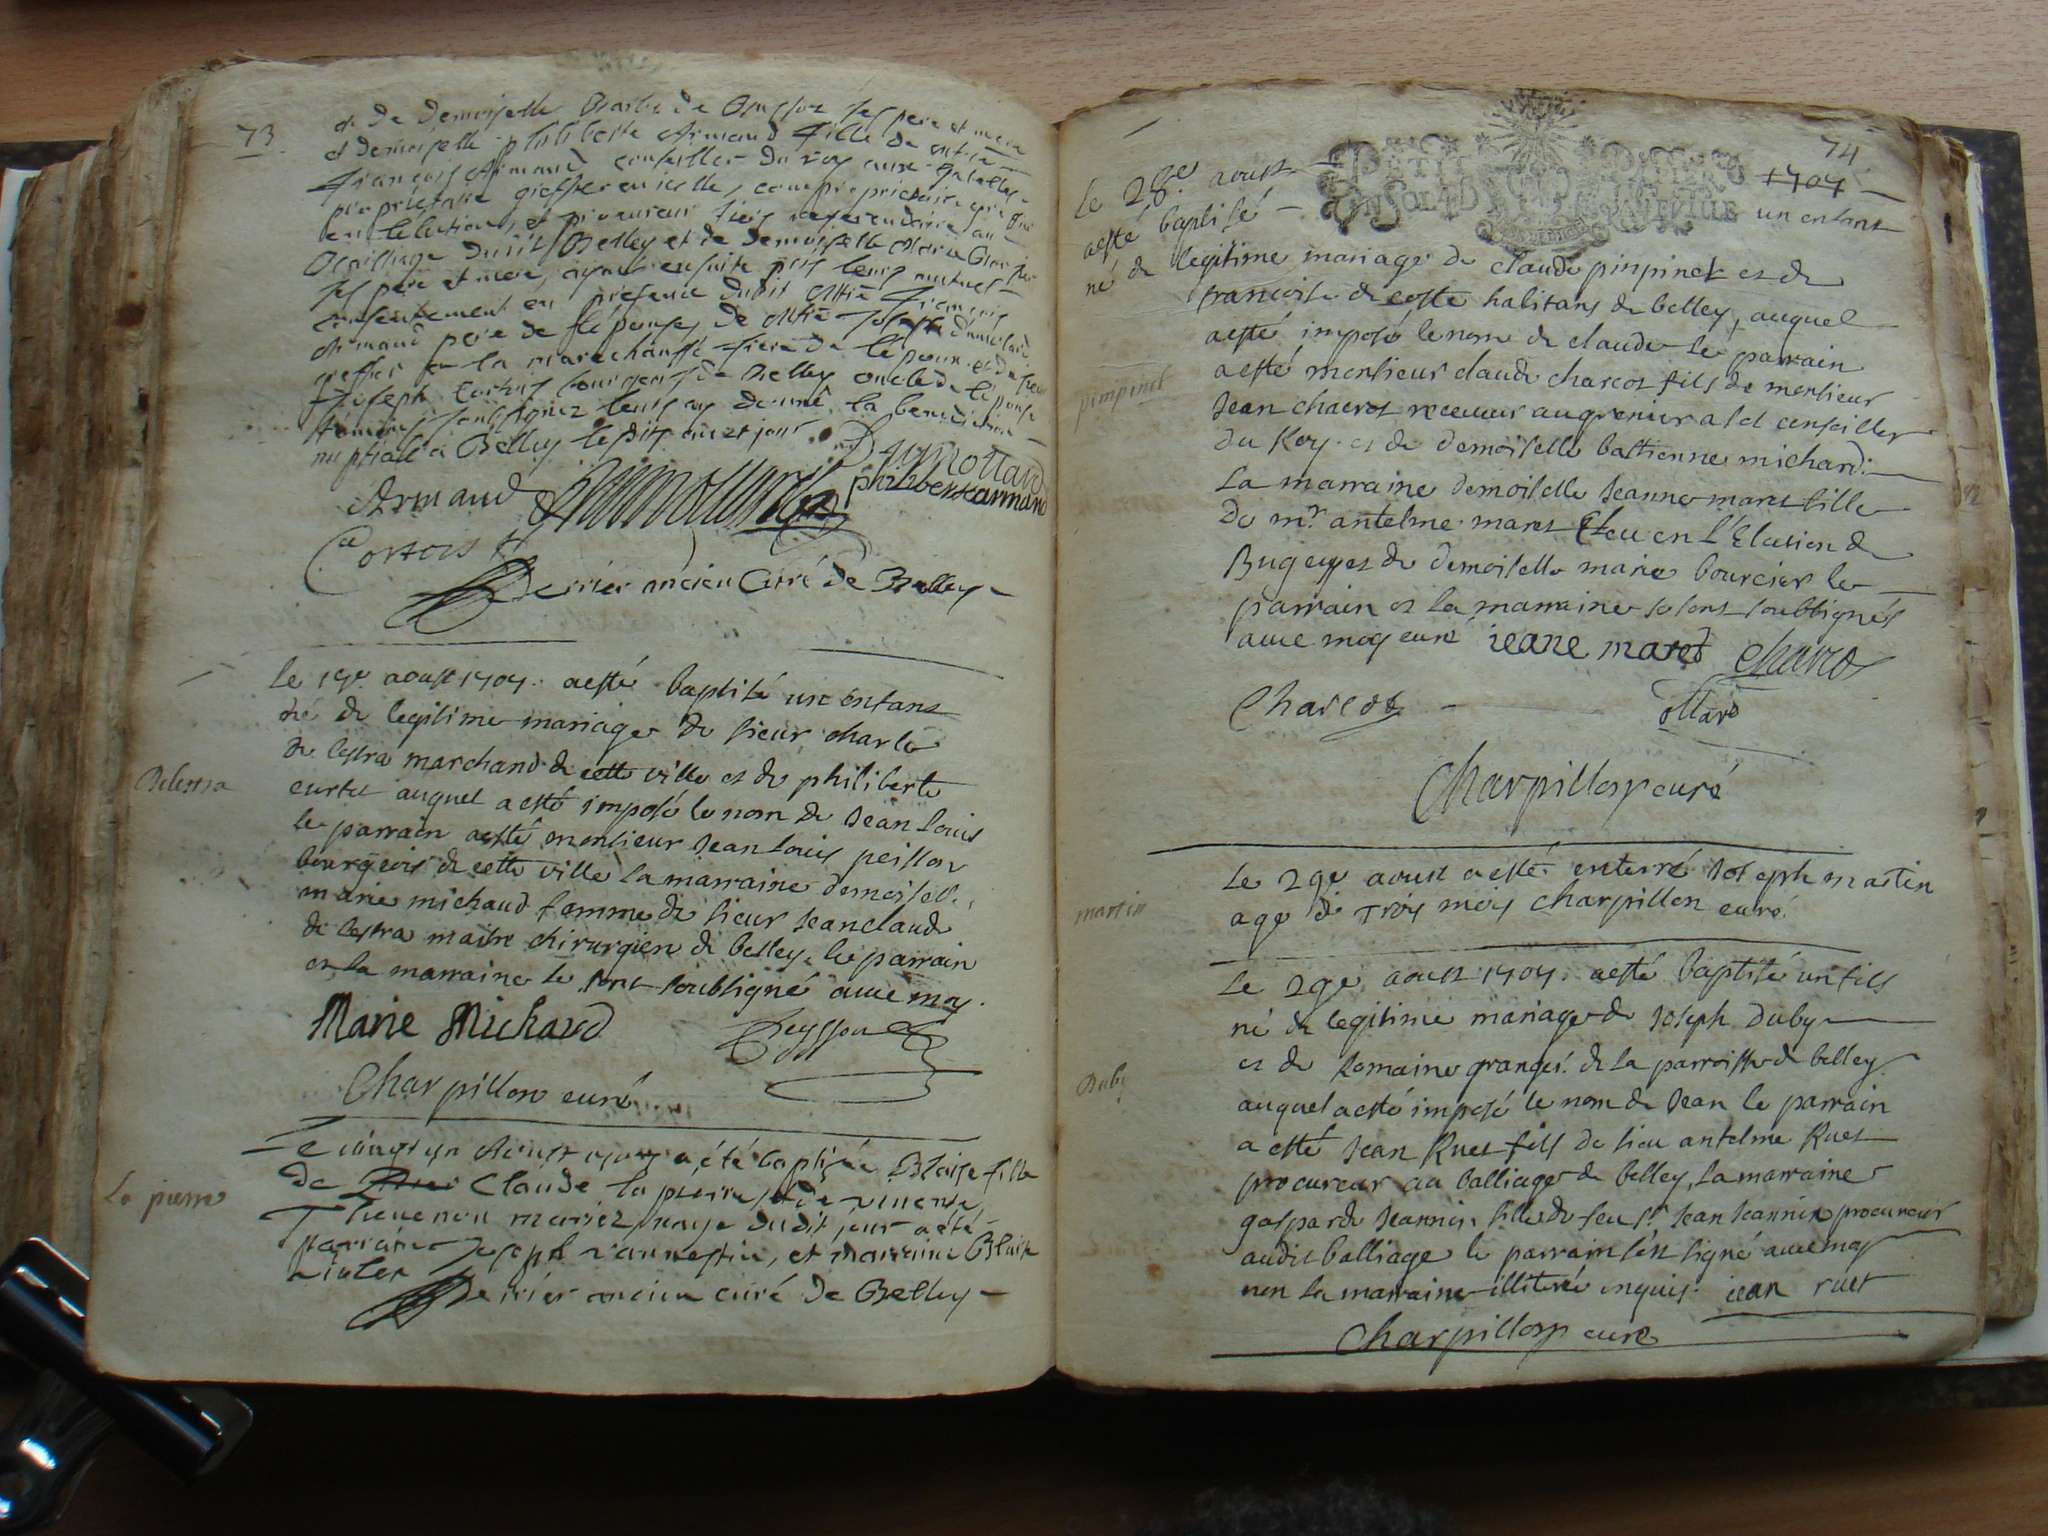 73
et de demoiselle de ses pere et mere
et demoiselle philiberte Armand fille de
François Armand conseiller du roy aux gabelles
proprietaire greffier en icelle,
en l'election, et procureur tiers referendaire au
Bailliage dudit Belley et de demoiselle Marie
ses pere et mere, ayant ensuite pris leurs mutuel
consentement en presence dudit François
Armand pere de l'épouse, de
greffier en la marechaussé frere de l'epoux et de
Joseph Cortois bourgeois de Belley oncle de l'épouse
témoins soussignez leurs ay donné la benediction
nuptiale à Belley lesdits an et jour.
Armand philiberte armand
Cortois
Derrier ancien Curé de Belley
Le 19e aoust 1707. a esté baptisé un enfant
né de legitime mariage de sieur charle
de lestra marchand de cette ville et de philiberte
curtet auquel a esté imposé le nom de Jean Louis
le parrain a esté monsieur Jean Louis peisson
bourgeois de cette ville la marraine demoiselle
marie michaud femme de sieur Jean claude
de lestra maitre chirurgien de belley. le parrain
et la marraine se sont soubsigné avec moy.
Delestra
Marie Michaud Peysson
Charpillon curé
Le vingt un Aoust 1707 a été baptisée Blaise fille
de Claude la pierre, et de
Thevenon mariez, naye dudit jour a été
parrain Joseph et marraine Blaise
La pierre
Derrier ancien curé de Belley
74
Le 28e aoust 1707
a esté baptisé un enfant
né de legitime mariage de claude pinpinet et de
francoise de coste habitans de belley, auquel
a esté imposé le nom de claude le parrain
a esté monsieur claude charcot fils de monsieur
pimpinet
Jean charcot receveur au grenier a sel conseiller
du Roy. et de demoiselle bastienne michard.
La marraine demoiselle Jeanne maret fille
de mr antelme maret Eleu en l'Election de
Bugey et de demoiselle marie bourcier le
parrain et la marraine se sont soubsignés
avec moy curé ieane maret charcot
Charcot ollard
Charpillon curé
Le 29e aoust a esté enterré Joseph martin
age de trois mois charpillon curé.
martin
Le 29e aoust 1707. a esté baptisé un fils
né de legitime mariage de Joseph Duby
et de Romaine grangé. de la parroisse de belley
Duby
auquel a esté imposé le nom de Jean le parrain
a esté Jean Ruet fils de sieu antelme Ruet
procureur au balliage de belley, la marraine
gasparde Jeannin fille de feu sr Jean Jeannin procureur
audit balliage le parrain s'est signé avec moy
non la marraine illiterée enquis. iean ruet
Charpillon curé